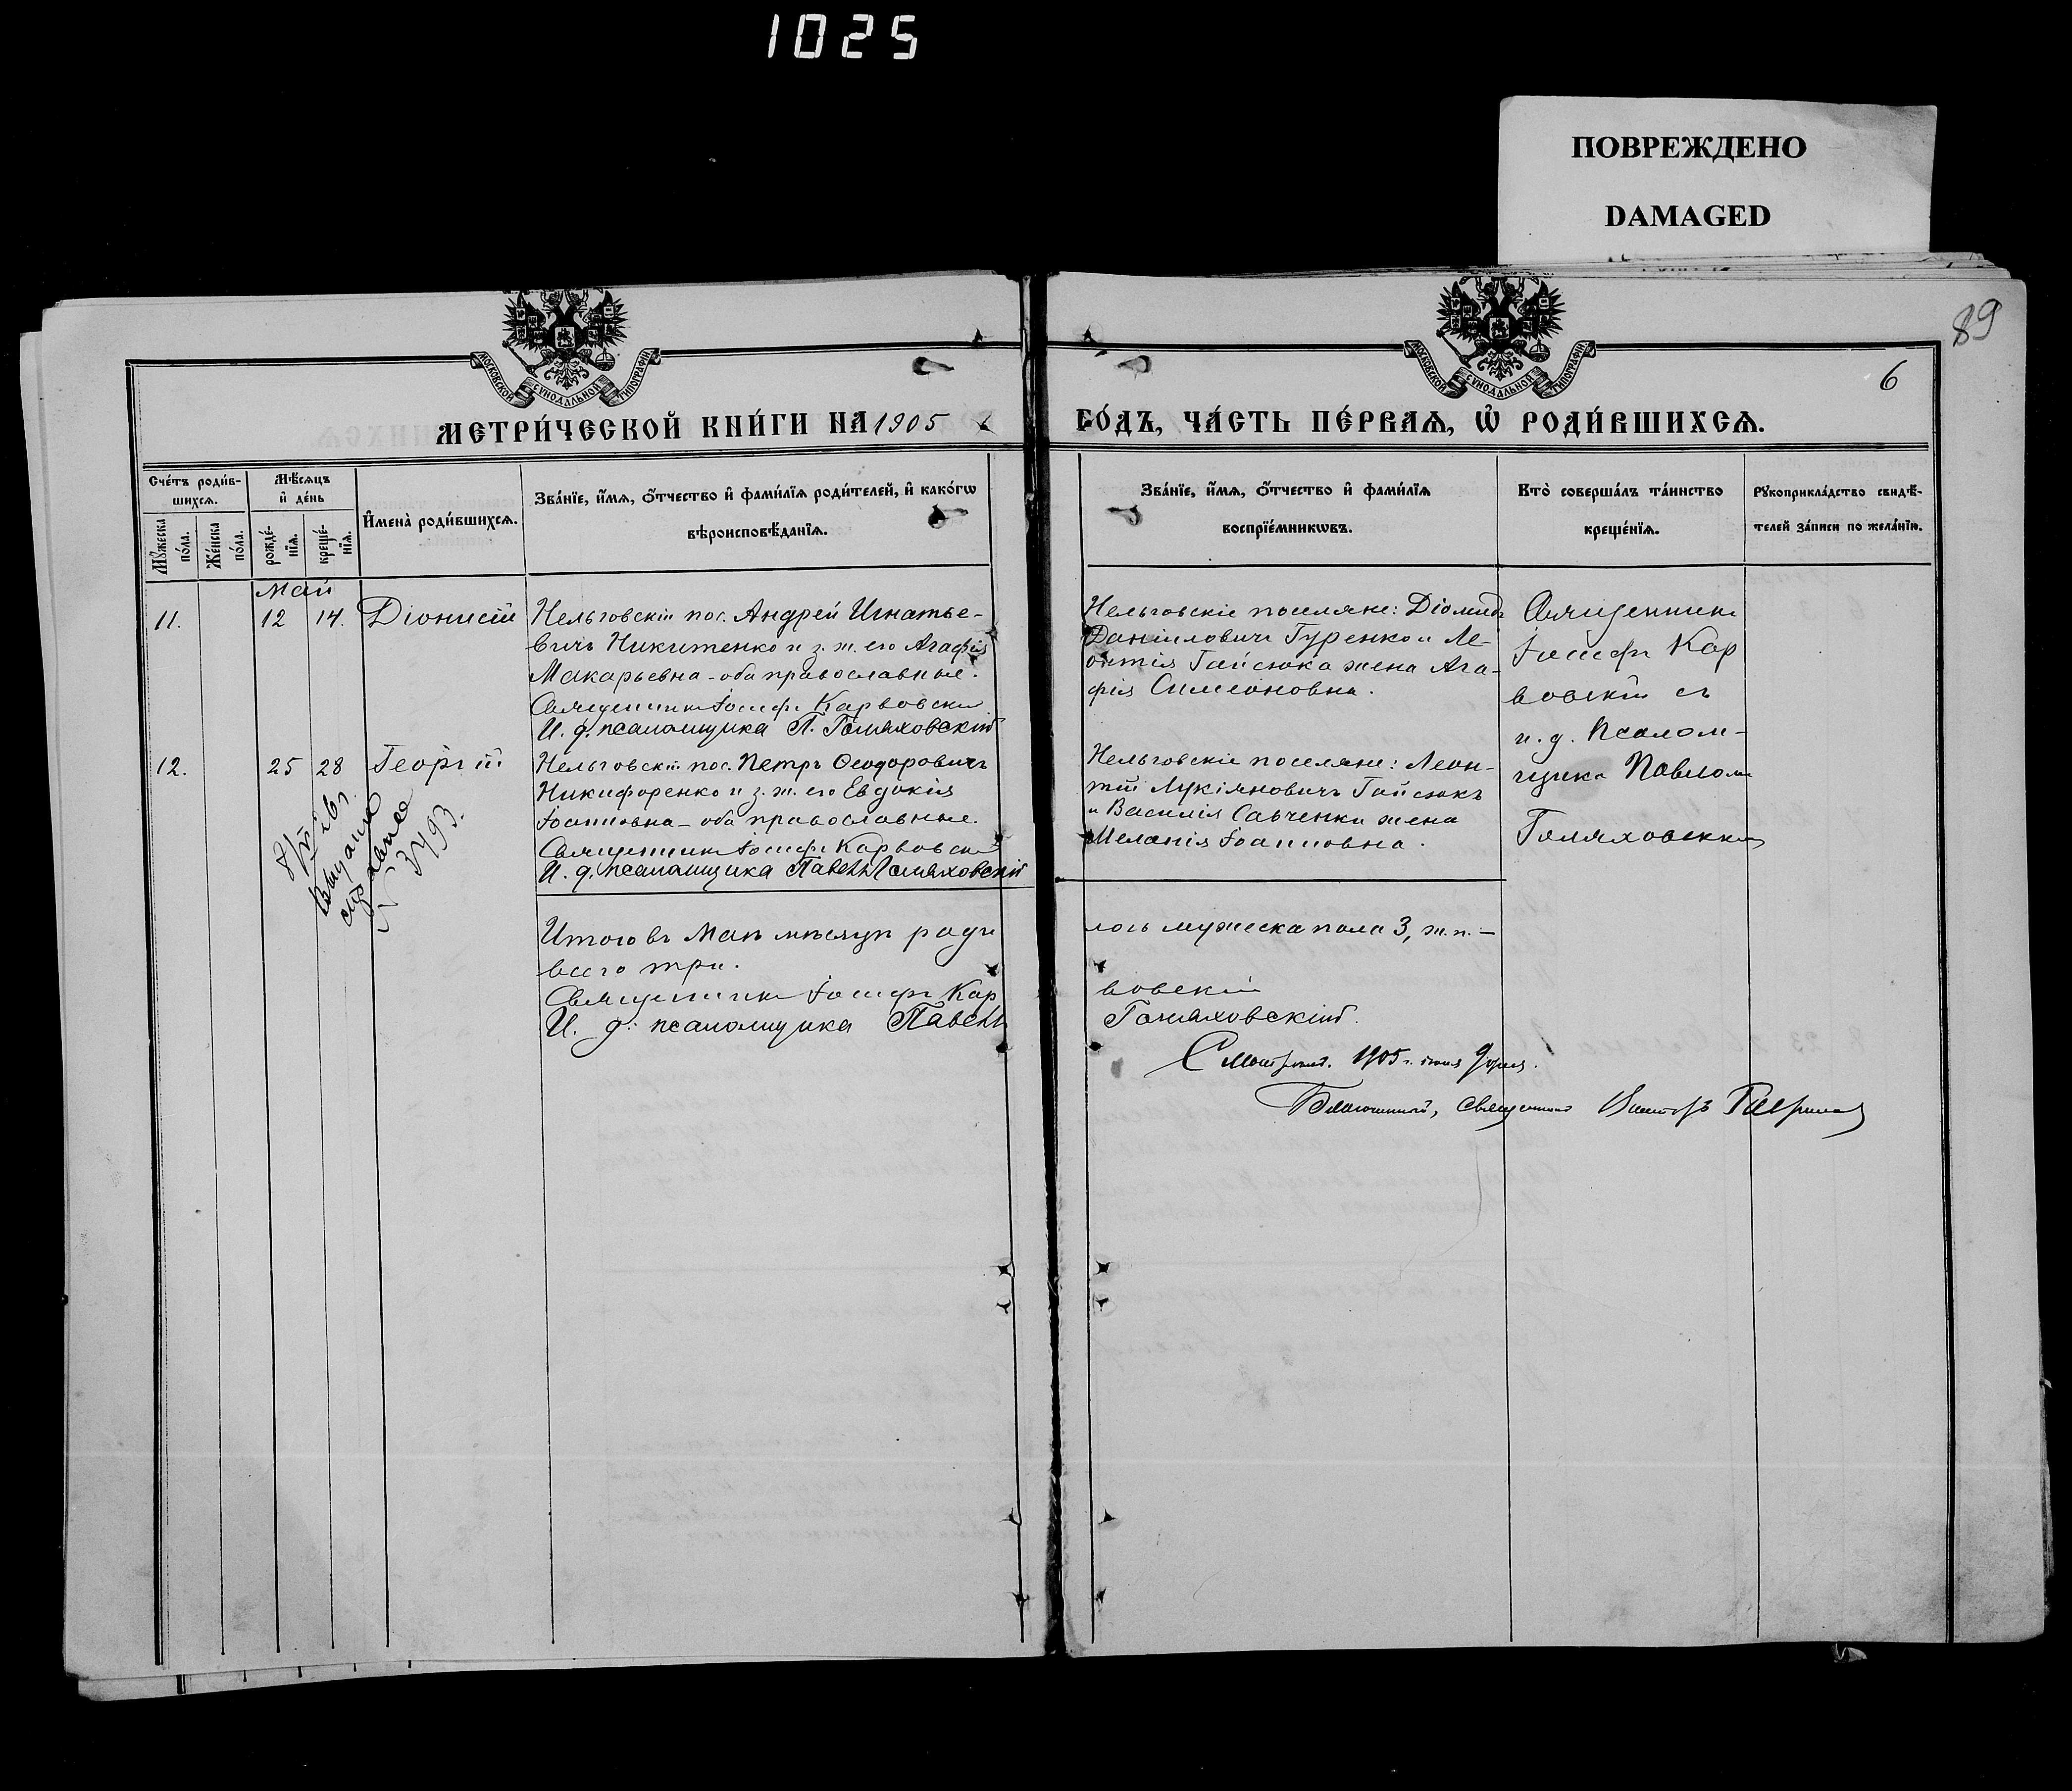 1025
ПОВРЕЖДЕНО
DAMAGED
89
6
МОСКОВСКОЙ СУНОДАЛЬНОЙ ТИПОГРАФІИ
МОСКОВСКОЙ СУНОДАЛЬНОЙ ТИПОГРАФІИ
МЕТРИ́ЧЕСКОЙ КНИ́ГИ НА 1905
ГО́ДЪ, ЧА́СТЬ ПЕ́РВАѦ, Ѡ҆ РОДИ́ВШИХСѦ.
Сче́тъ роди́в-
шихсѧ.
Мꙋ́жеска по́ла.
Же́нска по́ла.
Мѣ́сѧцъ
и҆ де́нь
рожде́-
нїѧ.
креще́-
нїѧ.
И҆мена̀ роди́вшихсѧ.
Зва́нїе, и҆́мѧ, ѻ҆́тчество и҆ фами́лїѧ роди́телей, и҆ како́гѡ
вѣроисповѣ́данїѧ.
Зва́нїе, и҆́мѧ, ѻ҆́тчество и҆ фами́лїѧ
воспрїе́мникѡвъ.
Кто̀ соверша́лъ та́инство
креще́нїѧ.
Рꙋкоприкла́дство свидѣ́-
телей за́писи по жела́нїю.
Май
11.
12
14.
Діонисій
Нельговскій пос. Андрей Игнатье-
вичъ Никитенко и з. ж. его Агафія
Макарьевна - оба православные.
Священникъ Іосифъ Карвовскій
И. д. псаломщика П. Голяховскій
Нельговскіе поселяне: Діомидъ
Даніиловичъ Гуренко и Ле-
онтія Гайсюка жена Ага-
фія Симеоновна.
Священникъ
Іосифъ Кар
вовскій съ
и. д. Псалом-
щика Павломъ
Голяховскимъ
12.
25
28
Георгій
Нельговскій пос. Петръ Ѳеодоровичъ
Никифоренко и з. ж. его Евдокія
Іоанновна - оба православные.
Священникъ Іосифъ Карвовскій
И. д. псаломщика Павелъ Голяховскій
Нельговскіе поселяне: Леон-
тій Лукіяновичъ Гайсюкъ
и Василія Савченки жена
Меланія Іоанновна.
26 г.
3493.
Итого въ Маѣ мѣсяцѣ роди
лось мужеска пола 3, ж. п. —
всего три.
Священникъ Іосифъ Кар
вовскій
И. д. псаломщика Павелъ
Голяховскій.
Смотрѣлъ. 1905 г. іюня 9 дня.
Благочинный, священникъ Викторъ